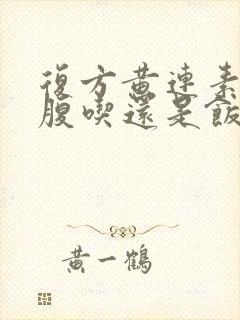 復方黃連素
腹喫還是飯
黃一鶴